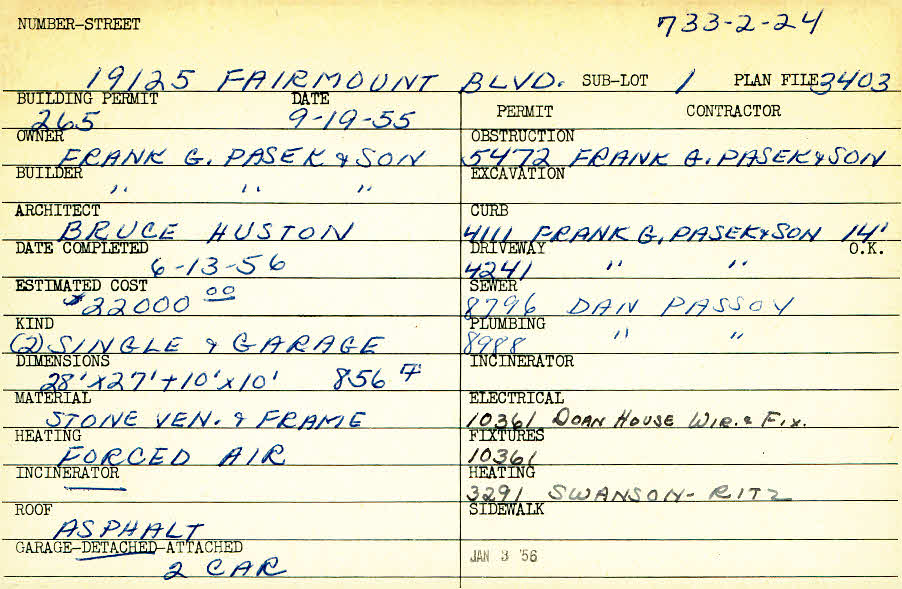 NUMBER-STREET 733-2-24
19125 FAIRMOUNT BLVD. SUB-LOT 1 PLAN FILE 3403
BUILDING PERMIT DATE
265 9-19-55
PERMIT CONTRACTOR
OWNER
FRANK G. PASEK & SON
OBSTRUCTION
5472 FRANK G. PASEK & SON
BUILDER
" " "
EXCAVATION
ARCHITECT
BRUCE HUSTON
CURB
4111 FRANK G. PASEK & SON 14'
DATE COMPLETED
6-13-56
DRIVEWAY O.K.
4241 " "
ESTIMATED COST
$22000 00
SEWER
8796 DAN PASSOV
KIND
(2) SINGLE & GARAGE
PLUMBING
8988 " "
DIMENSIONS
28'x27'+10'x10' 856
INCINERATOR
MATERIAL
STONE VEN. & FRAME
ELECTRICAL
10361 DOAN HOUSE WIR. & FIX.
HEATING
FORCED AIR
FIXTURES
10361
INCINERATOR
HEATING
3291 SWANSON-RITZ
ROOF
ASPHALT
SIDEWALK
GARAGE-DETACHED-ATTACHED
2 CAR
JAN 3 '56